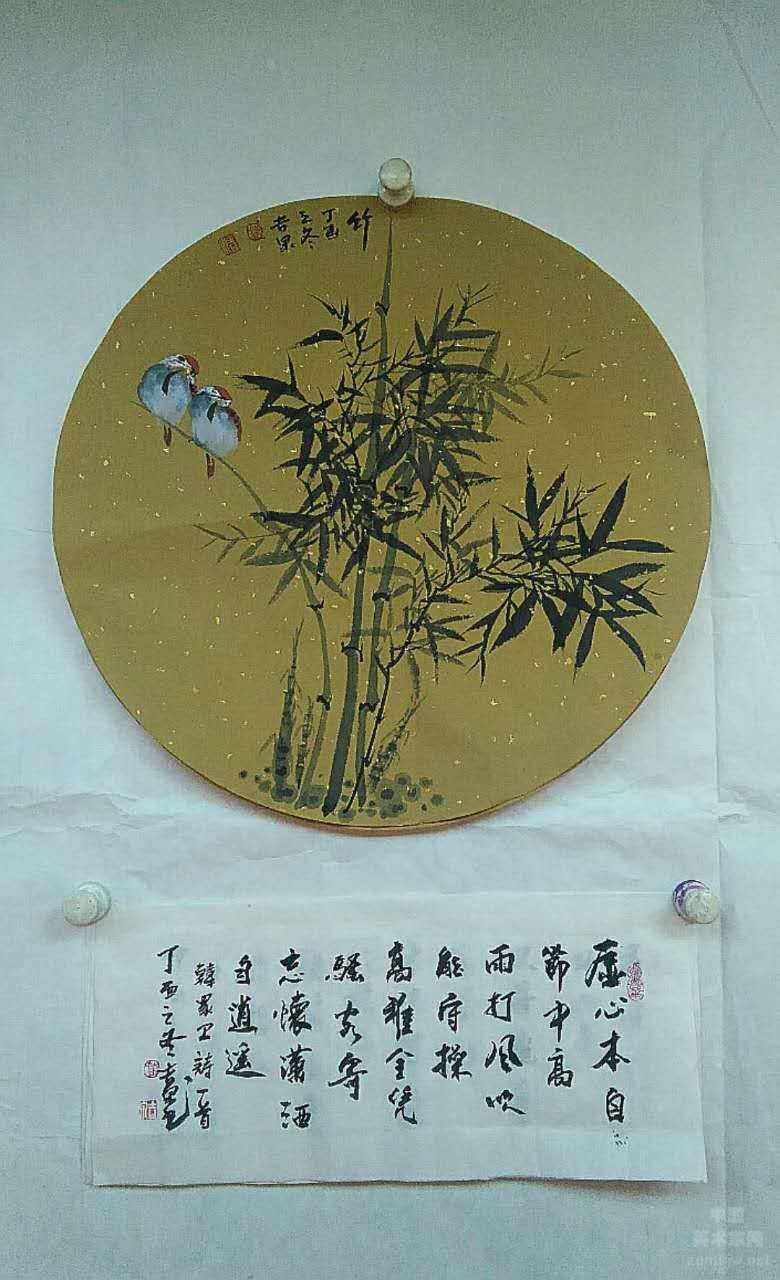 竹
丁酉
之冬
虛心本自
節中高
雨打風吹
能守操
高雅全凭
騷客寄
忘懷瀟洒
自逍遥
韓 卫詩一首
丁酉之冬
美术家网